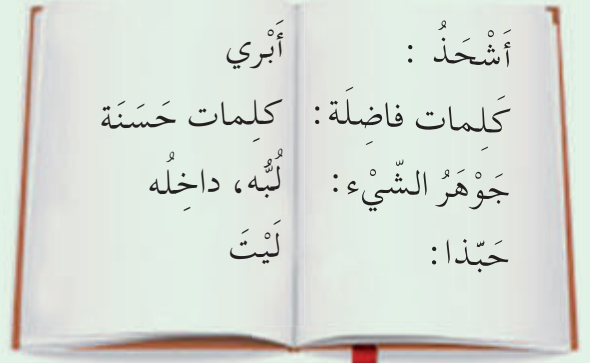 أَشْحَذُ : أَبْري
كَلِمات فاضِلَة : كلِمات حَسَنَة
جَوْهَرُ الشّيْء : لُبُّه، داخِلُه
حَبّذا : لَيْتَ